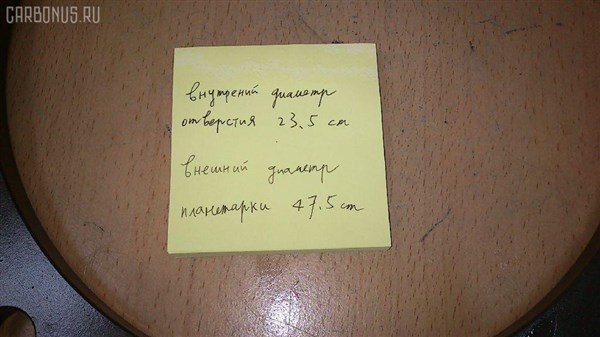 CARBONUS.RU
внутрений диаметр
отверстия 23.5 cm
внешний диаметр
планетарки 47.5 cm